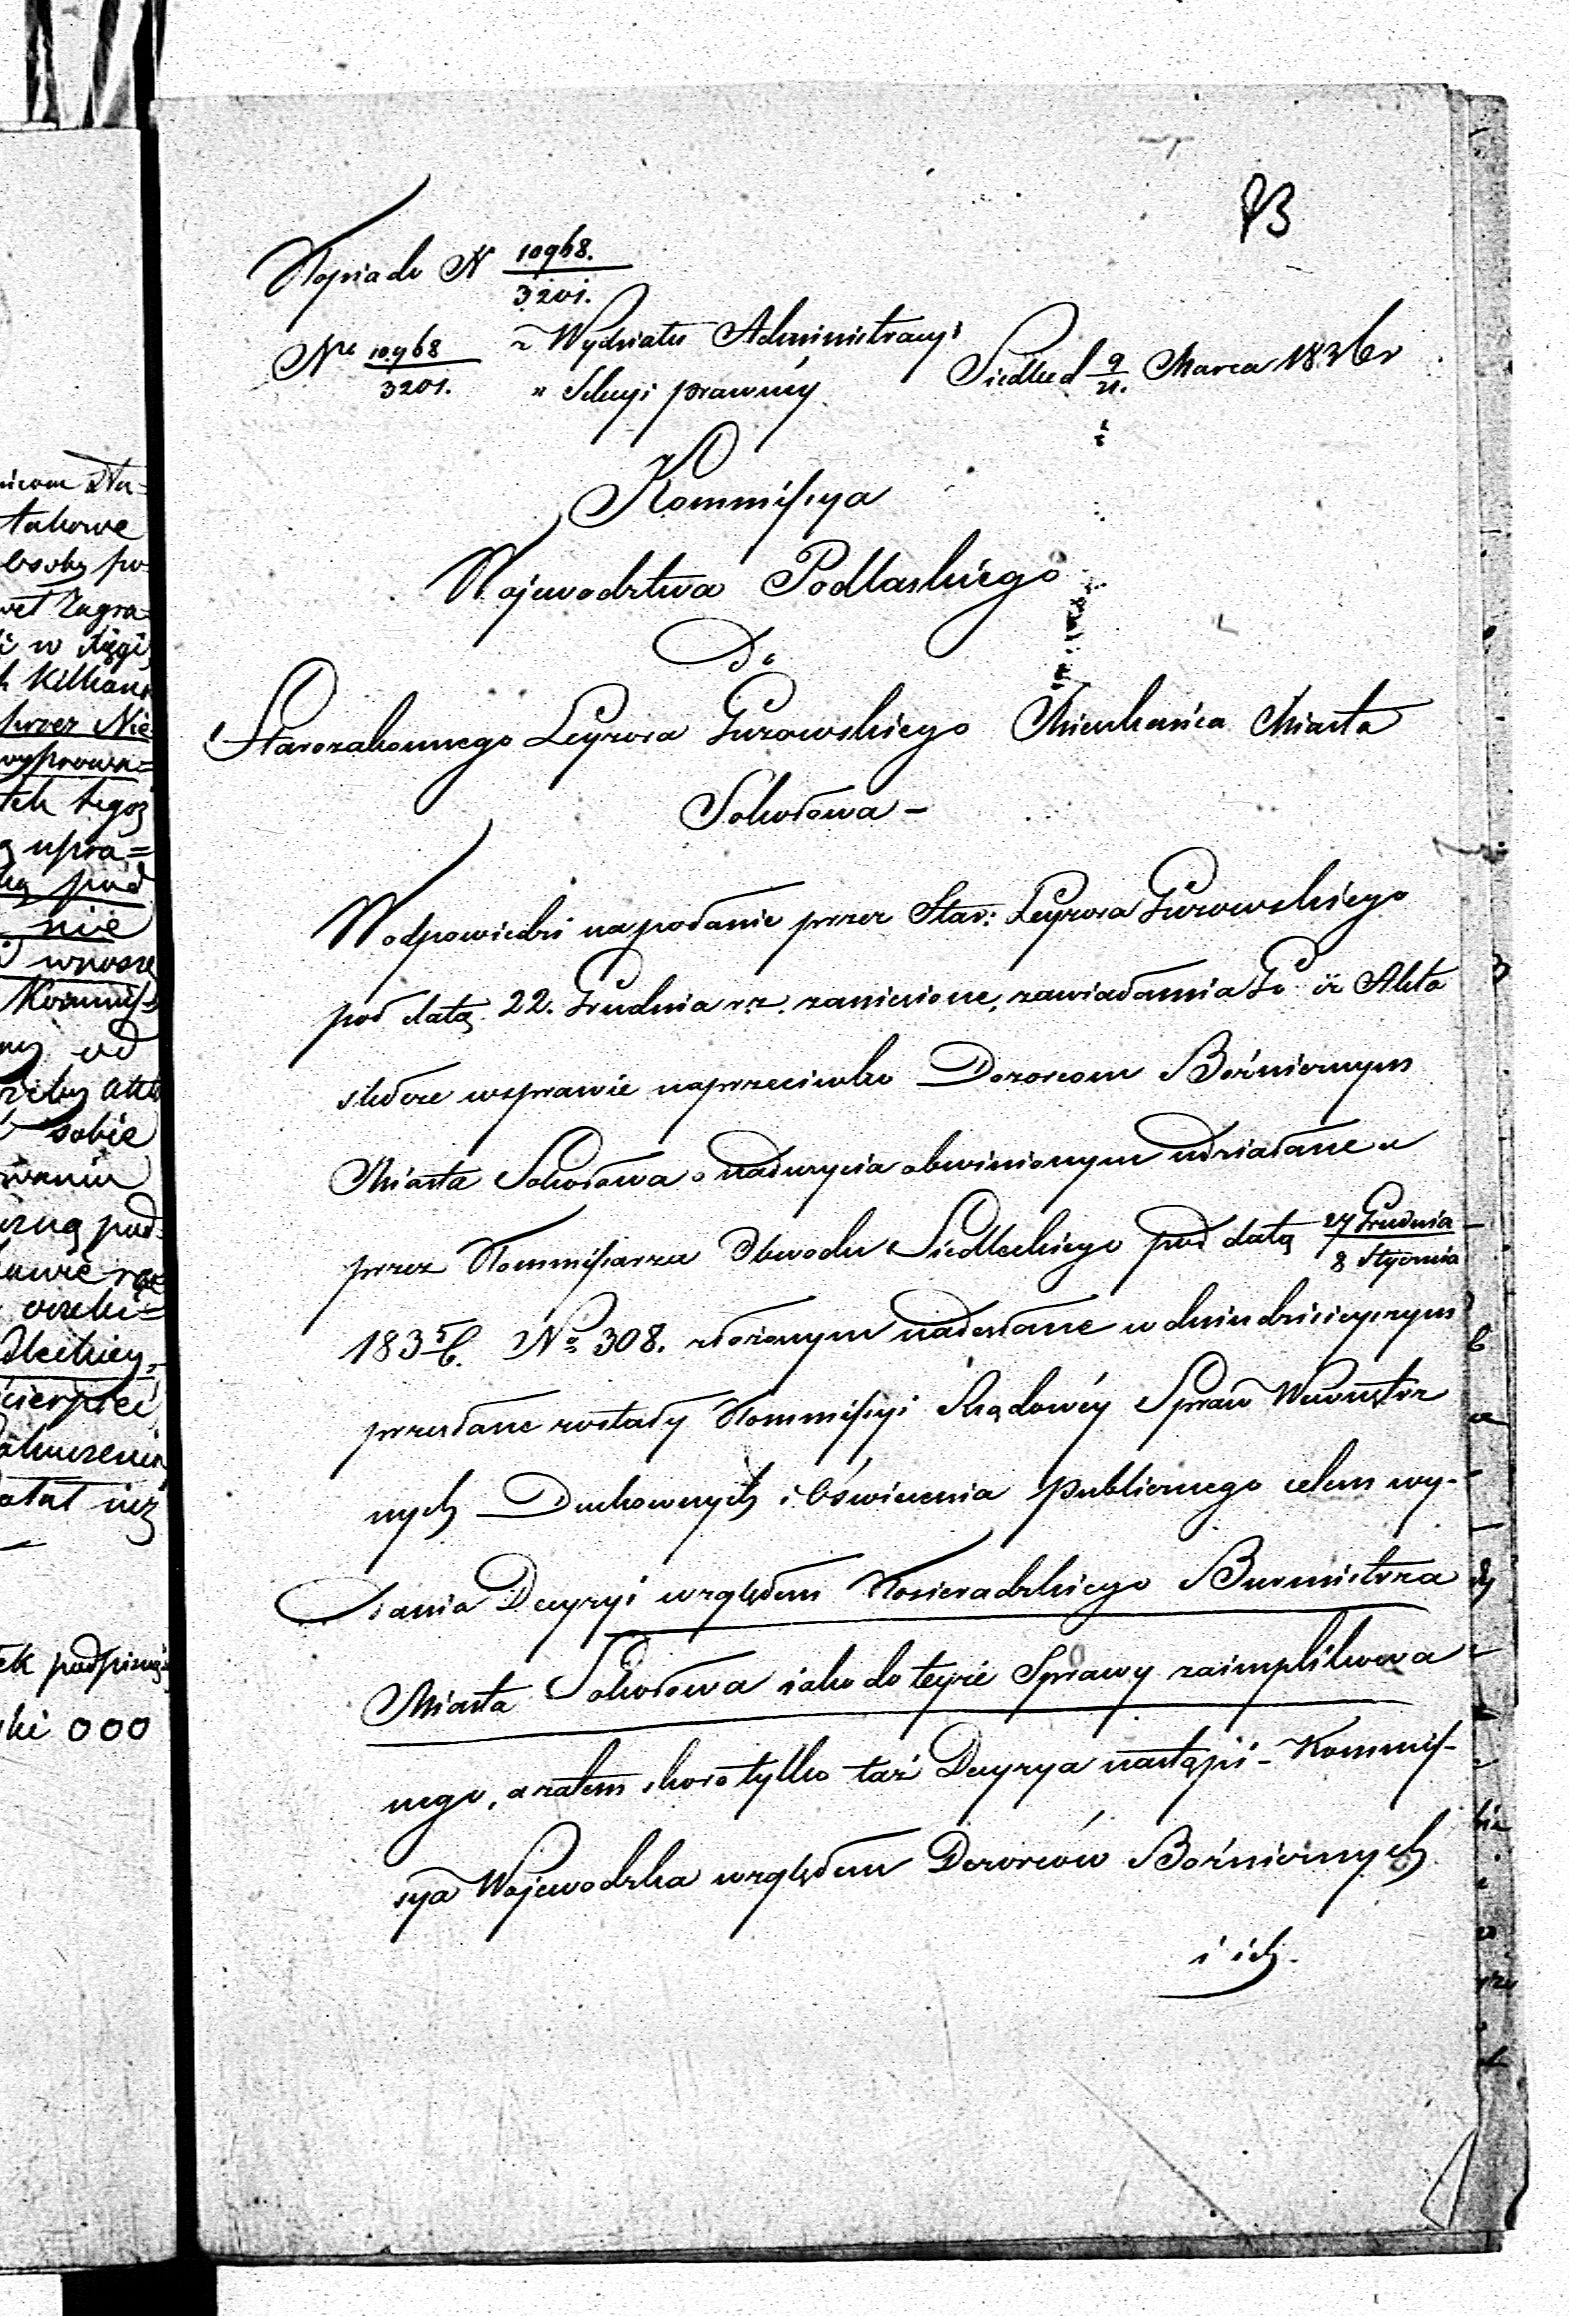 73
Kopia do N 10968./3201.
Nro 10968/3201. z Wydziału Administracyi Siedlce d 9/21. Marca 1836 r
" Sekcyi prawnéy
Kommissya
Woiewodztwa Podlaskiego
Do
Starozakonnego Leyzora Gurowskiego Mieszkańca Miasta
Sokołowa –
W odpowiedzi na podanie przez Star: Leyzora Gurowskiego
pod datą 22. Grudnia r. z. zaniesione, zawiadamia Go iż Akta
śledcze w sprawie naprzeciwko Dozorcom Bóźnicznym
Miasta Sokołowa o nadużycia obwinionym udziałane a
przez Kommissarza Obwodu Siedleckiego pod datą 27 Grudnia/8 Stycznia
1835/6. No 308. złożonym nadesłane w dniu dzisieyszym
przesłane zostały Kommissyi Rządowéy Spraw Wewnętrz
nych Duchownych i Oświecenia Publicznego celem wy-
dania Decyzyi względem Kosieradzkiego Burmistrza
Miasta Sokołowa iako do teyże Sprawy zaimplikowa
nego, a zatem skoro tylko taż Decyzya nastąpi – Kommis-
sya Wojewodzka względem Dozorców Bóźnicznych
i ich.
takowe
osoby po
Zagra
i w
przez Nie
tegoż
upra=
pod
nie
wnoszę
Kommis
od
sobie
pod
cierpieć
podpisuję
000